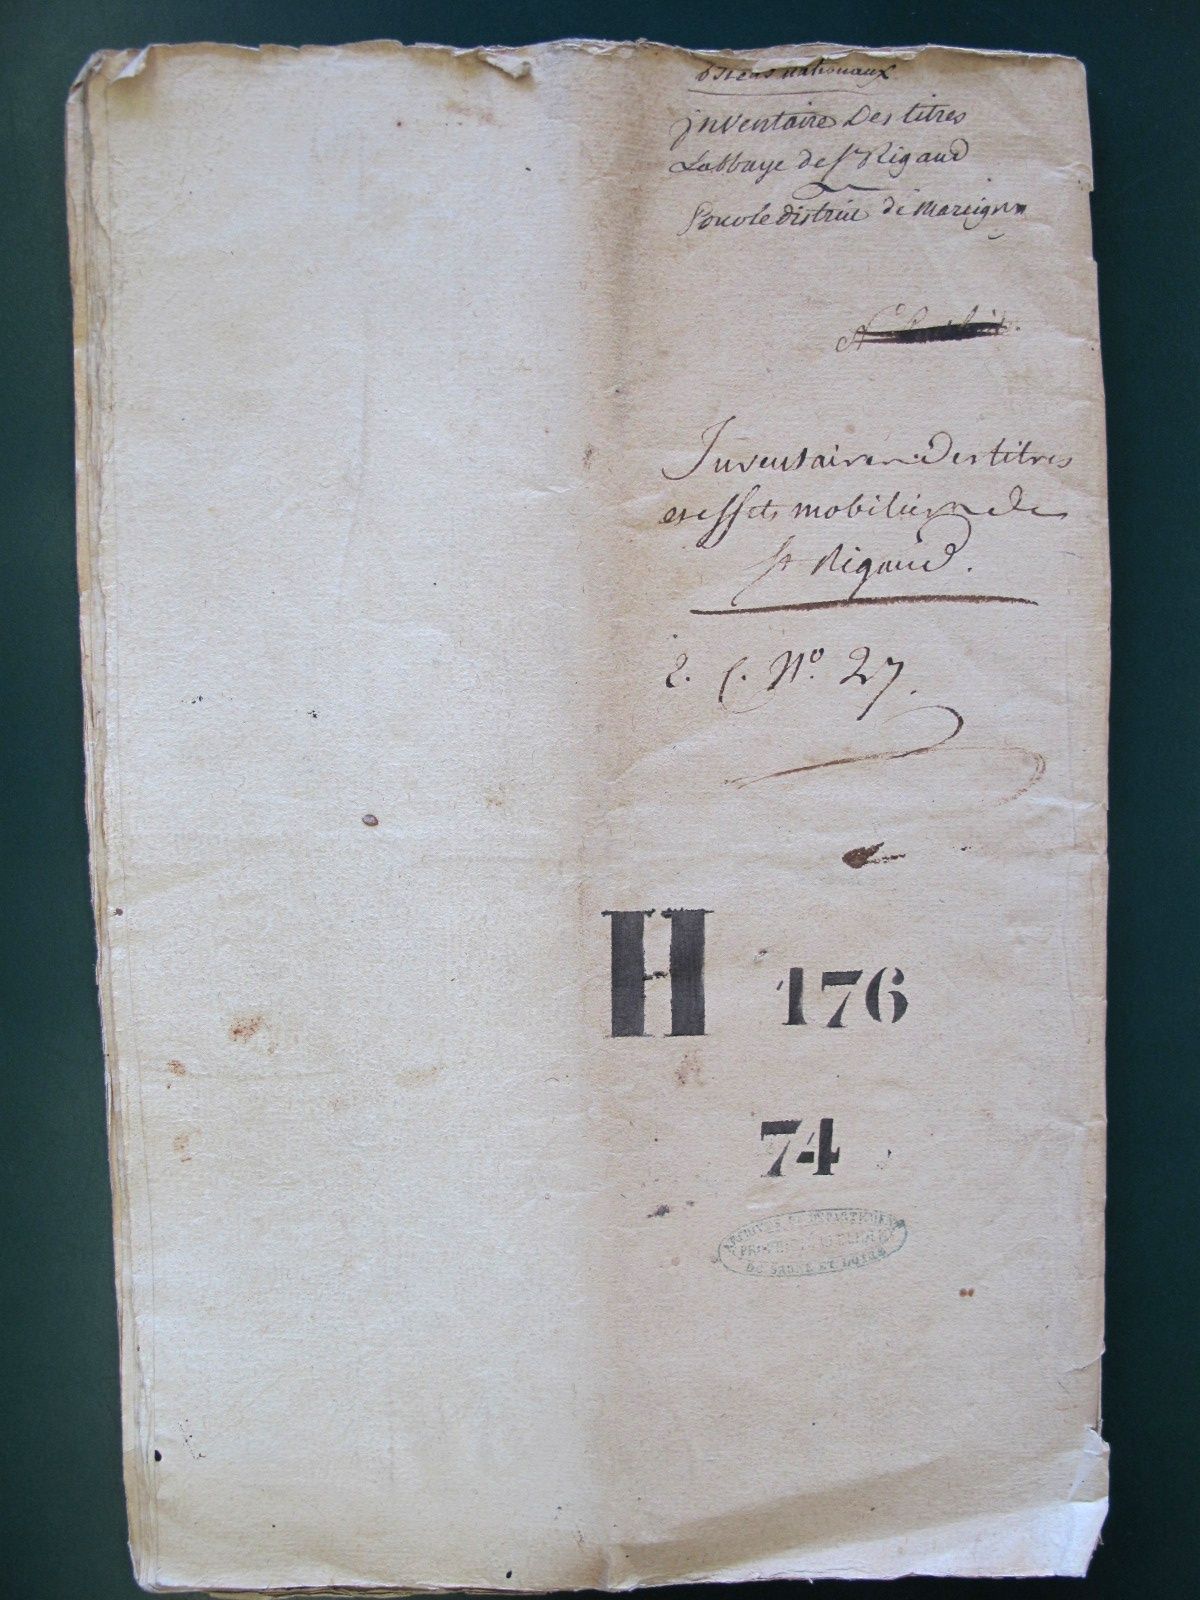 Biens nationaux
inventaire Des titres
Labbaye de St Rigaud
Pour le district de Marcigny
Inventaire Des titres
et effets mobiliers de
St Rigaud.
2. C. No. 27.
H 176
74
ARCHIVES DEPARTEMENT
DE SAONE ET LOIRE